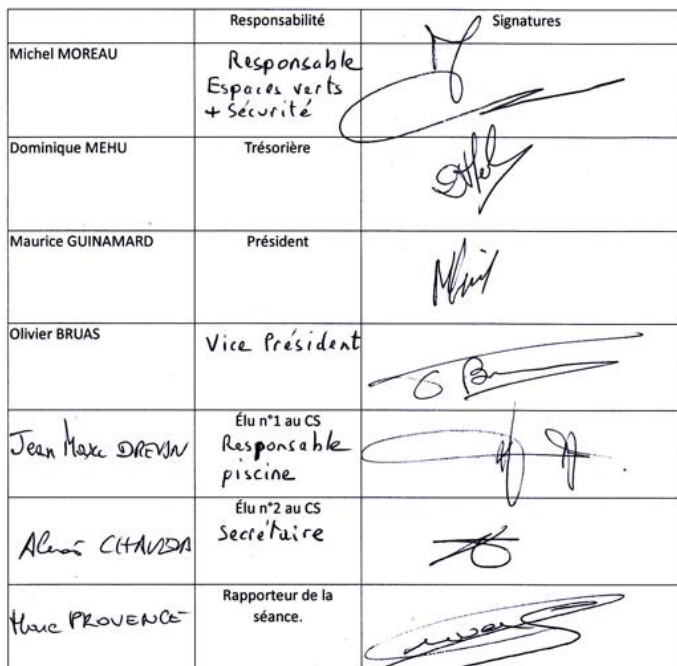 Responsabilité Signatures
Michel MOREAU Responsable
Espaces verts
+ Sécurité
Dominique MEHU Trésorière
Maurice GUINAMARD Président
Olivier BRUAS Vice Président
Élu n°1 au CS
Jean Marc DREVIN Responsable
piscine
Élu n°2 au CS
Secrétaire
Marc PROVENCE Rapporteur de la
séance.